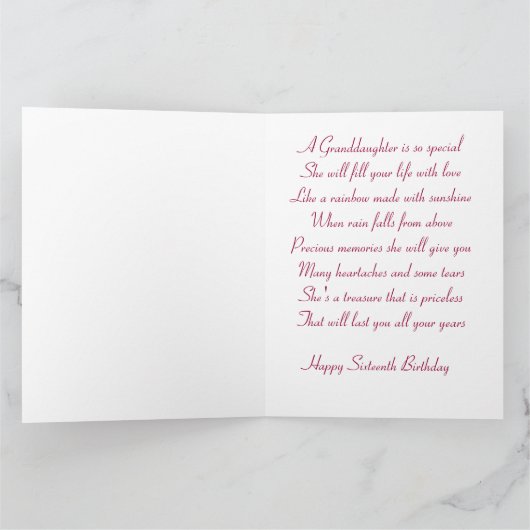 A Granddaughter is so special
She will fill your life with love
Like a rainbow made with sunshine
When rain falls from above
Precious memories she will give you
Many heartaches and some tears
She's a treasure that is priceless
That will last you all your years
Happy Sixteenth Birthday